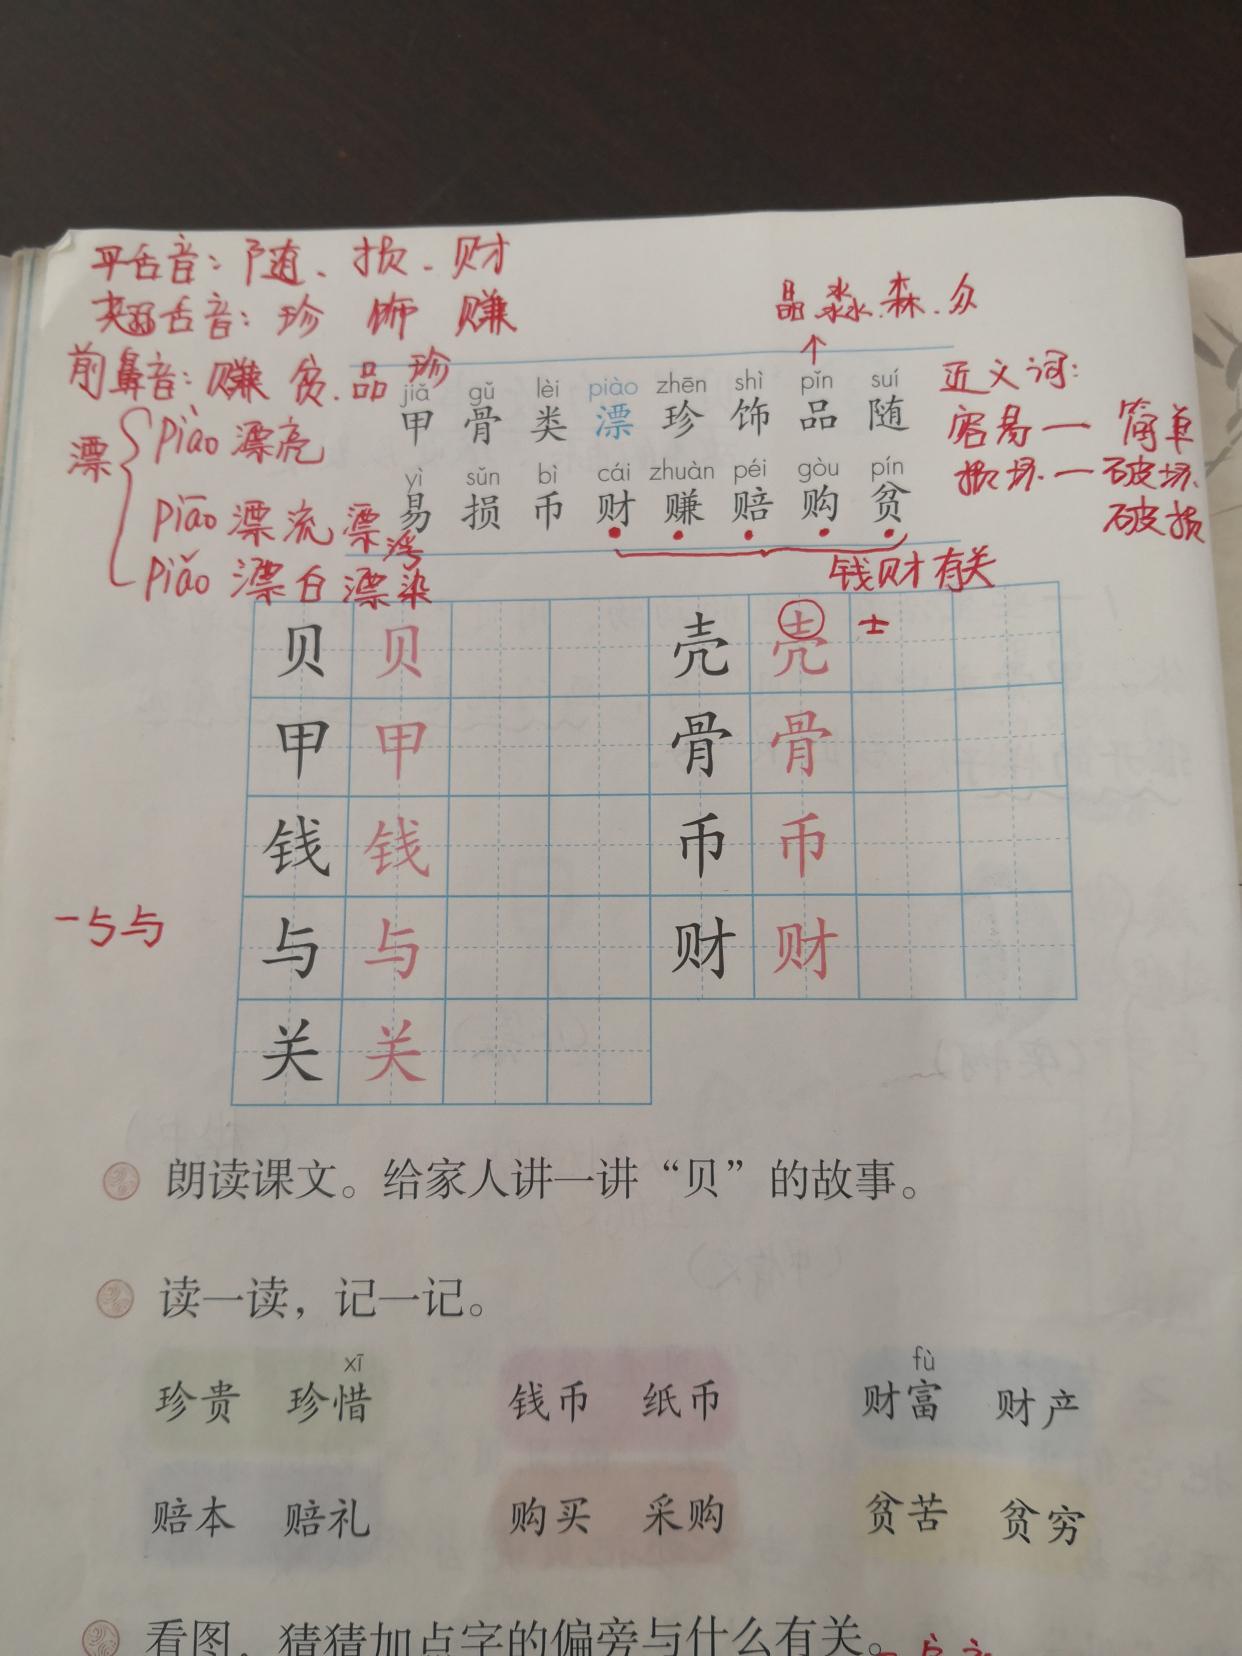 平舌音：随、损、财
翘舌音：珍 饰 赚
晶.淼.森.众
前鼻音：赚 贫.品 珍
近义词：
jiǎ gǔ lèi piào zhēn shì pǐn suí
甲 骨 类 漂 珍 饰 品 随
漂
piào 漂亮
容易一 简单
yì sǔn bì cái zhuàn péi gòu pín
易 损 币 财 赚 赔 购 贫
损坏.一破坏.
破损
piāo 漂流 漂浮
piǎo 漂白 漂染
钱财有关
贝 贝 壳 壳 士
甲 甲 骨 骨
钱 钱 币 币
一与与
与 与 财 财
关 关
朗读课文。给家人讲一讲“贝”的故事。
读一读，记一记。
xī fù
珍贵 珍惜 钱币 纸币 财富 财产
赔本 赔礼 购买 采购 贫苦 贫穷
看图，猜猜加点字的偏旁与什么有关。